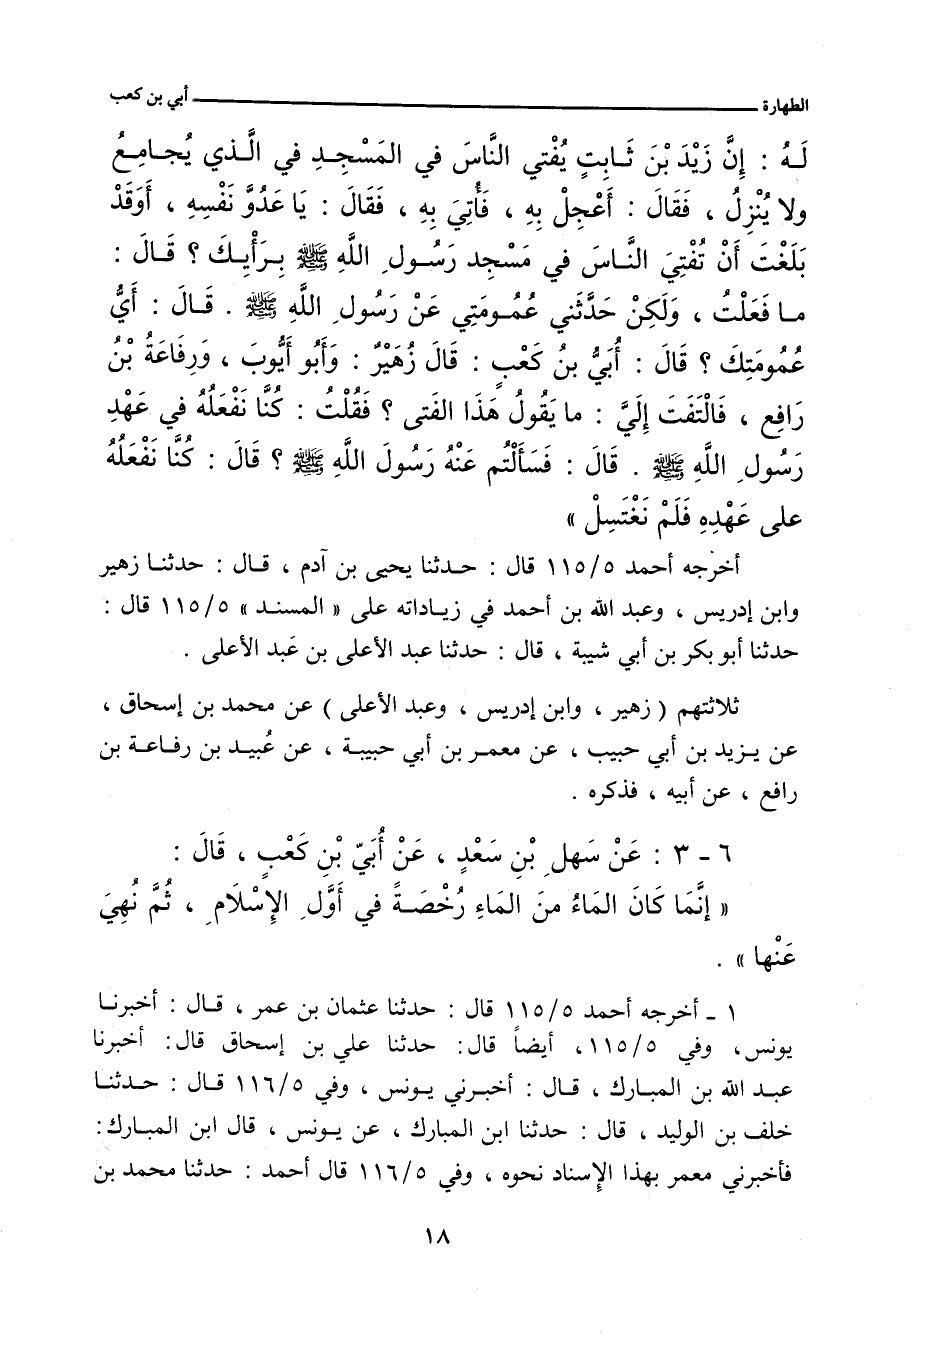 الطهارة أبي بن كعب
لَهُ : إِنَّ زَيْدَ بْنَ ثَابِتٍ يُفْتي النَّاسَ في المَسْجِدِ في الَّذي يُجامِعُ
ولا يُنْزِلُ ، فَقَالَ : أَعْجِلْ بِهِ ، فَأُتِيَ بِهِ ، فَقَالَ : يَا عَدُوَّ نَفْسِهِ ، أَوَقَدْ
بَلَغْتَ أَنْ تُفْتِيَ النَّاسَ في مَسْجِدِ رَسُولِ اللَّهِ ﷺ بِرَأْيِكَ ؟ قَالَ :
ما فَعَلْتُ ، وَلَكِنْ حَدَّثَني عُمُومَتِي عَنْ رَسُولِ اللَّهِ ﷺ . قَالَ : أَيُّ
عُمُومَتِكَ ؟ قَالَ : أُبَيُّ بنُ كَعْبٍ : قَالَ زُهَيْرٌ : وَأَبُو أَيُّوبَ ، وَرِفَاعَةُ بْنُ
رَافِعٍ ، فَالْتَفَتَ إِلَيَّ : ما يَقُولُ هَذَا الفَتى ؟ فَقُلْتُ : كُنَّا نَفْعَلُهُ في عَهْدِ
رَسُولِ اللَّهِ ﷺ . قَالَ : فَسَأَلْتُم عَنْهُ رَسُولَ اللَّهِ ﷺ ؟ قَالَ : كُنَّا نَفْعَلُهُ
على عَهْدِهِ فَلَمْ نَغْتَسِلْ »
أخرجه أحمد ١١٥/٥ قال : حدثنا يحيى بن آدم ، قال : حدثنا زهير
وابن إدريس ، وعبد الله بن أحمد في زياداته على « المسند » ١١٥/٥ قال :
حدثنا أبو بكر بن أبي شيبة ، قال : حدثنا عبد الأعلى بن عَبد الأعلى .
ثلاثتهم ( زهير ، وابن إدريس ، وعبد الأعلى ) عن محمد بن إسحاق ،
عن يزيد بن أبي حبيب ، عن معمر بن أبي حبيبة ، عن عُبيد بن رفاعة بن
رافع ، عن أبيه ، فذكره .
٦ - ٣ : عَنْ سَهلِ بْنِ سَعْدٍ ، عَنْ أُبَيّ بْنِ كَعْبٍ ، قَالَ :
« إِنَّمَا كَانَ المَاءُ منَ المَاءِ رُخْصَةً في أَوَّلِ الإِسْلَامِ ، ثُمَّ نُهِيَ
عَنْها » .
١ - أخرجه أحمد ١١٥/٥ قال : حدثنا عثمان بن عمر ، قال : أخبرنا
يونس، وفي ١١٥/٥، أيضاً قال: حدثنا علي بن إسحاق قال: أخبرنا
عبد الله بن المبارك ، قال : أخبرني يونس ، وفي ١١٦/٥ قال : حدثنا
خلف بن الوليد ، قال : حدثنا ابن المبارك ، عن يونس ، قال ابن المبارك:
فأخبرني معمر بهذا الإِسناد نحوه ، وفي ١١٦/٥ قال أحمد : حدثنا محمد بن
١٨